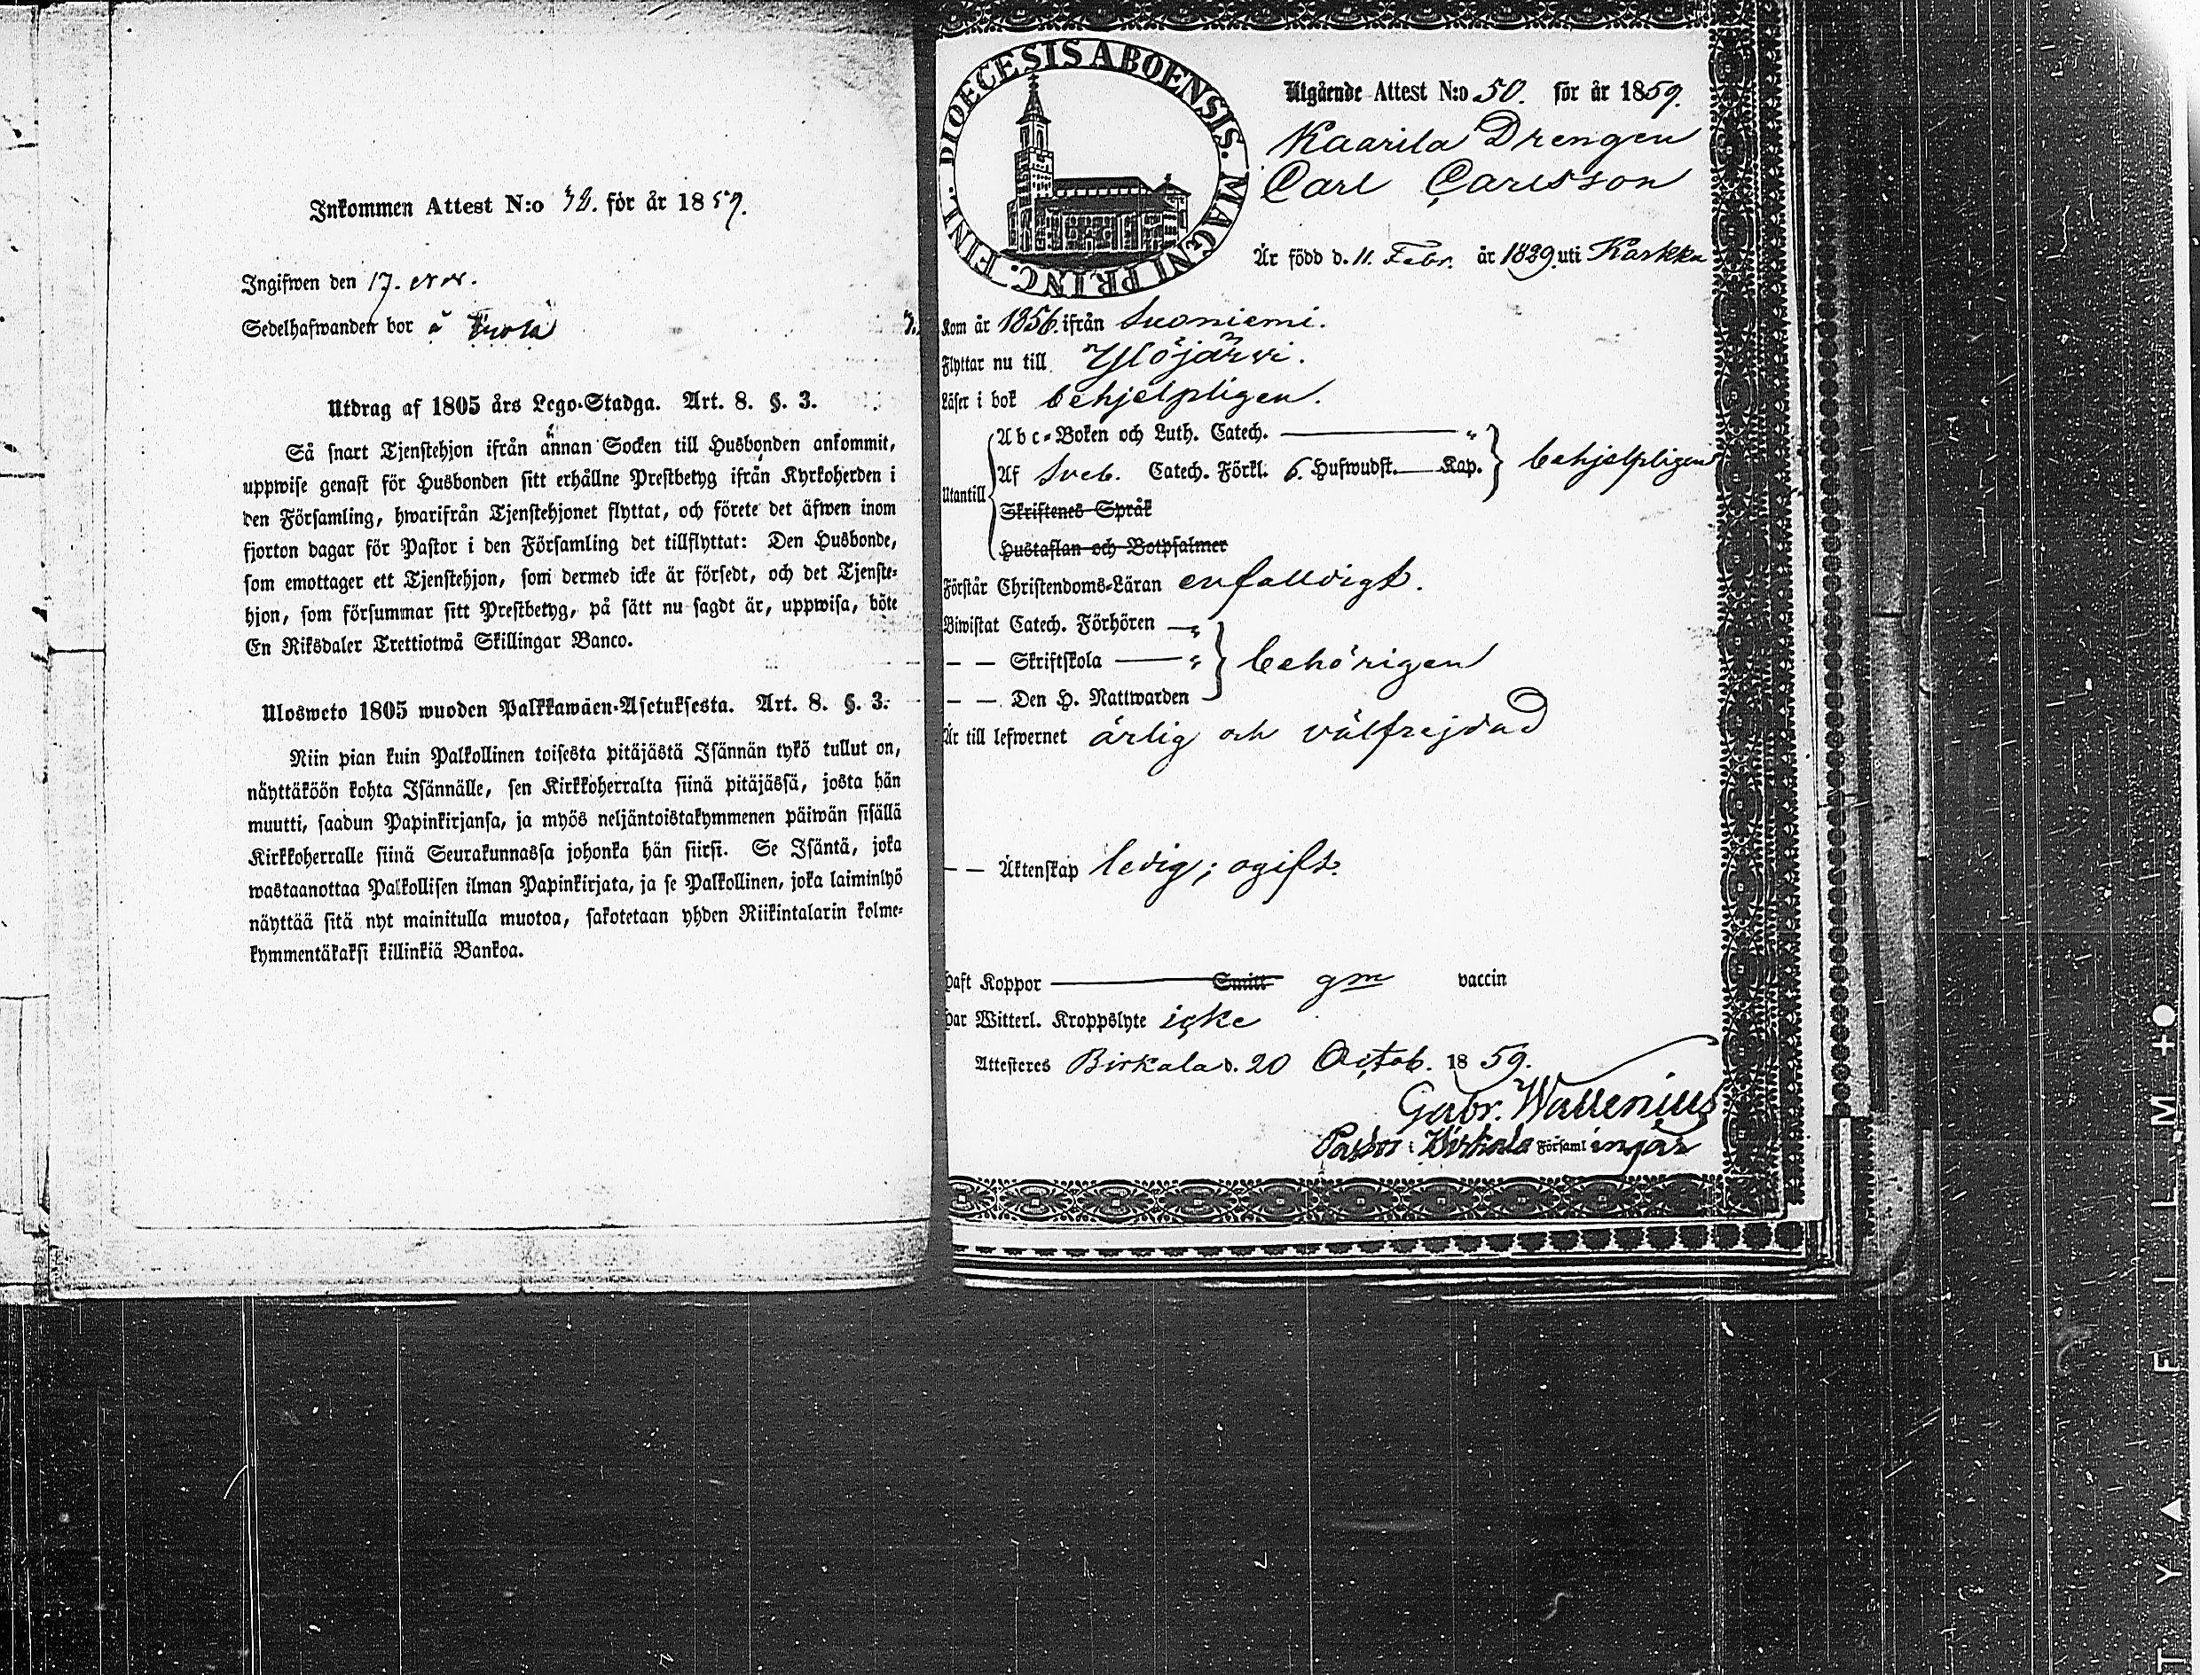 Inkommen Attest N:o 32. för år 1859.
Ingifwen den 17. Nov.
Sedelhafwanden bor å
Utdrag af 1805 års Lego-Stadga. Art. 8. §. 3.
Så snart Tjenstehjon ifrån annan Socken till Husbonden ankommit,
uppwise genast för Husbonden sitt erhållne Prestbetyg ifrån Kyrkoherden i
den Församling, hwarifrån Tjenstehjonet flyttat, och förete det äfwen inom
fjorton dagar för Pastor i den Församling det tillflyttat: Den Husbonde,
som emottager ett Tjenstehjon, som dermed icke är försedt, och det Tjenste-
hjon, som försummar sitt Prestbetyg, på sätt nu sagdt är, uppwisa, böte
En Riksdaler Trettiotwå Skillingar Banco.
Ulosweto 1805 wuoden Palkkawäen-Asetuksesta. Art. 8. §. 3.
Niin pian kuin Palkollinen toisesta pitäjästä Isännän tykö tullut on,
näyttäköön kohta Isännälle, sen Kirkkoherralta siinä pitäjässä, josta hän
muutti, saadun Papinkirjansa, ja myös neljäntoistakymmenen päiwän sisällä
Kirkkoherralle siinä Seurakunnassa johonka hän siirsi. Se Isäntä, joka
wastaanottaa Palkollisen ilman Papinkirjata, ja se Palkollinen, joka laiminlyö
näyttää sitä nyt mainitulla muotoa, sakotetaan yhden Riikintalarin kolme-
kymmentäkaksi killinkiä Bankoa.
DIOECESIS ABOENSIS. MAGNI PRINC. FINL.
Utgående Attest N:o 50. för år 1859.
Kaarila Drengen
Carl Carlsson
Är född d. 11. Febr. år 1829 uti Karkku
Kom år 1856. ifrån Suoniemi.
Flyttar nu till Ylöjärvi.
Läser i bok behjelpligen.
Utantill
Abc-Boken och Luth. Catech. — "
Af Sveb. Catech. Förkl. 6. Hufwudst. — Kap. behjelpligen
Skriftenes Språk
Hustaflan och Botpsalmer
Förstår Christendoms-Läran enfalldigt.
Biwistat Catech. Förhören — "
— — Skriftskola — " behörigen
— — Den H. Nattwarden
Är till lefwernet ärlig och välfrejdad
— — Äktenskap ledig; ogift.
Haft Koppor — Smitt gm vaccin
Har Witterl. Kroppslyte icke
Attesteres Birkala d. 20 Octob. 1859.
Gabr. Wallenius
Pastor i Birkala Församlingar